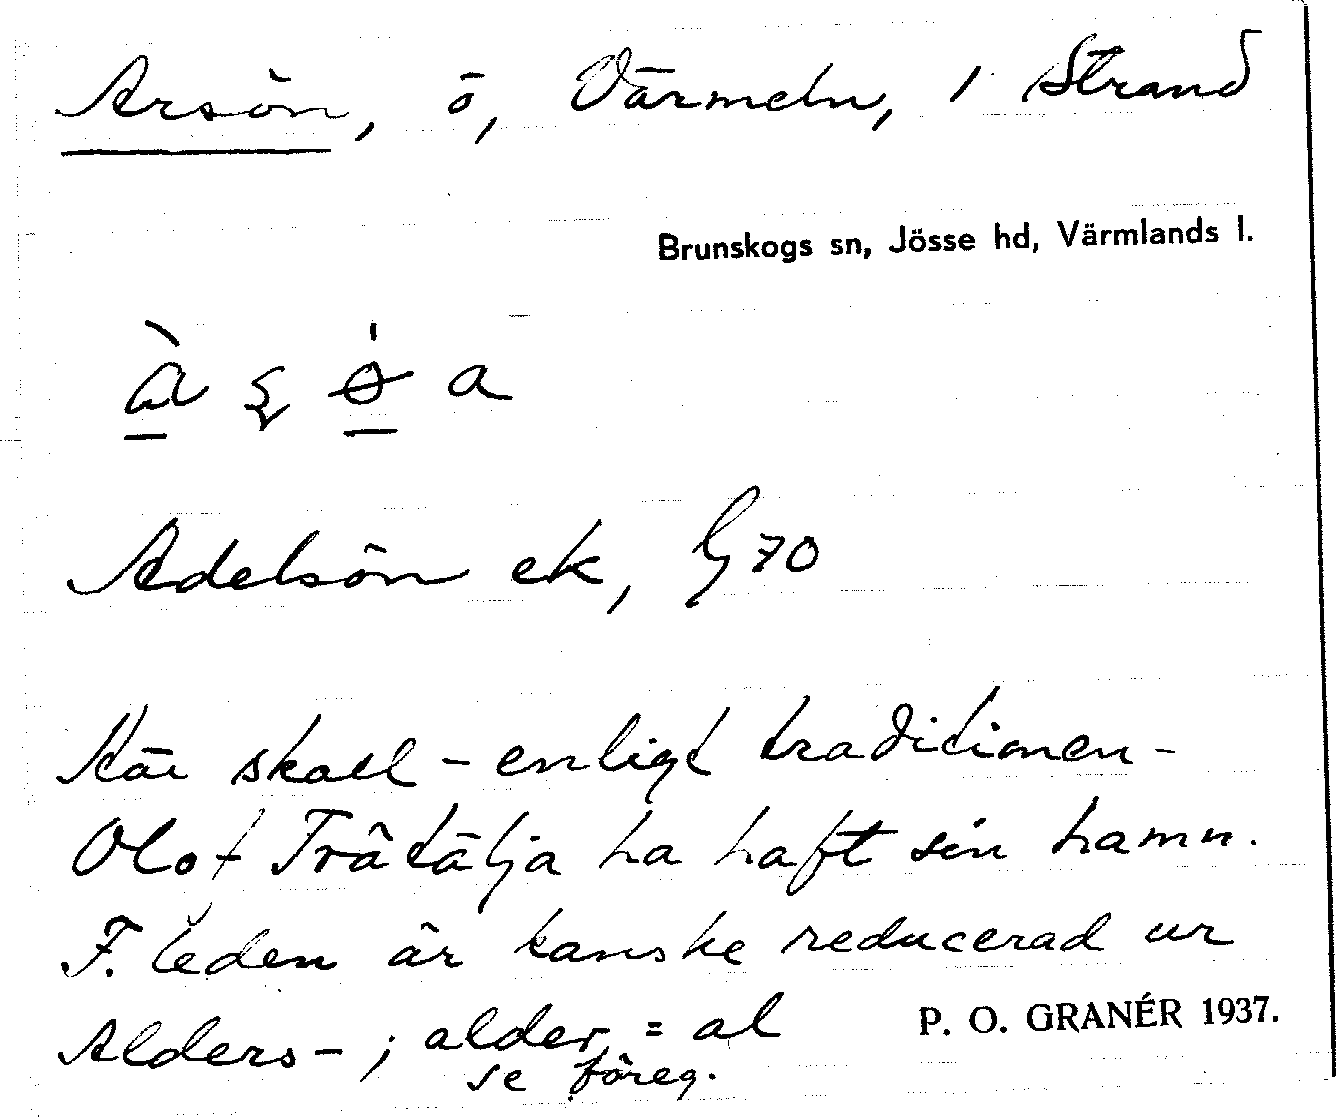 Arsön, ö, Värmeln, 1 Strand
Brunskogs sn, Jösse hd, Värmlands l.
Adelsön ek, G 70
Här skall - enligt traditionen -
Olof Trätälja ha haft sin hamn.
F. leden är kanske reducerad ur
Alders- ; alder = al
se föreg.
P. O. GRANÉR 1937.